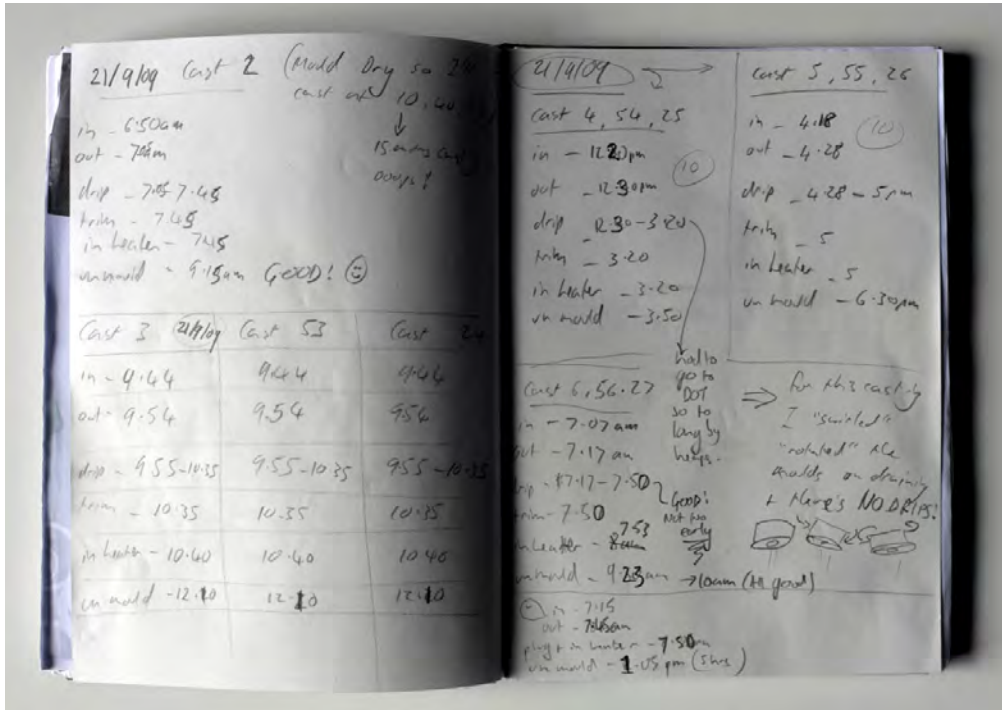 21/9/09 Cast 2 (Mould Dry so 2nd
cast at 10.40
↓
15 mins cast
ooops!
in - 6.50am
out - 7.05am
drip - 7.05 7.45
trim - 7.45
in heater - 7.45
unmould - 9.15am GOOD! ☺
Cast 3 21/9/09 Cast 53 Cast 24
in - 9.44 9.44 9.44
out - 9.54 9.54 9.54
drip - 9.55-10.35 9.55-10.35 9.55-10.35
trim - 10.35 10.35 10.35
in heater - 10.40 10.40 10.40
un mould - 12.10 12.10 12.10
21/9/09
cast 4, 54, 25
in - 12.20pm
(10)
out - 12.30pm
drip 12.30-3.20
trim - 3.20
in heater - 3.20
un mould - 3.50
had to
go to
DOT
so to
long by
heaps.
cast 5, 55, 26
in - 4.18
(10)
out - 4.28
drip - 4.28 - 5pm
trim - 5
in heater - 5
un mould - 6.30pm
Cast 6, 56.27
in - 7.07am
out - 7.17 am
drip - 7.17-7.50
trim - 7.50
GOOD!
Not too
early
in heater - 7.53
unmould - 9.23am → 10am (all good)
⇒ for this casting
I "swirled"
"rotated" the
moulds on draining
+ there's NO DRIPS!
in - 7.15
out - 7.45am
plug + in heater - 7.50am
un mould - 1.05pm (5hrs)